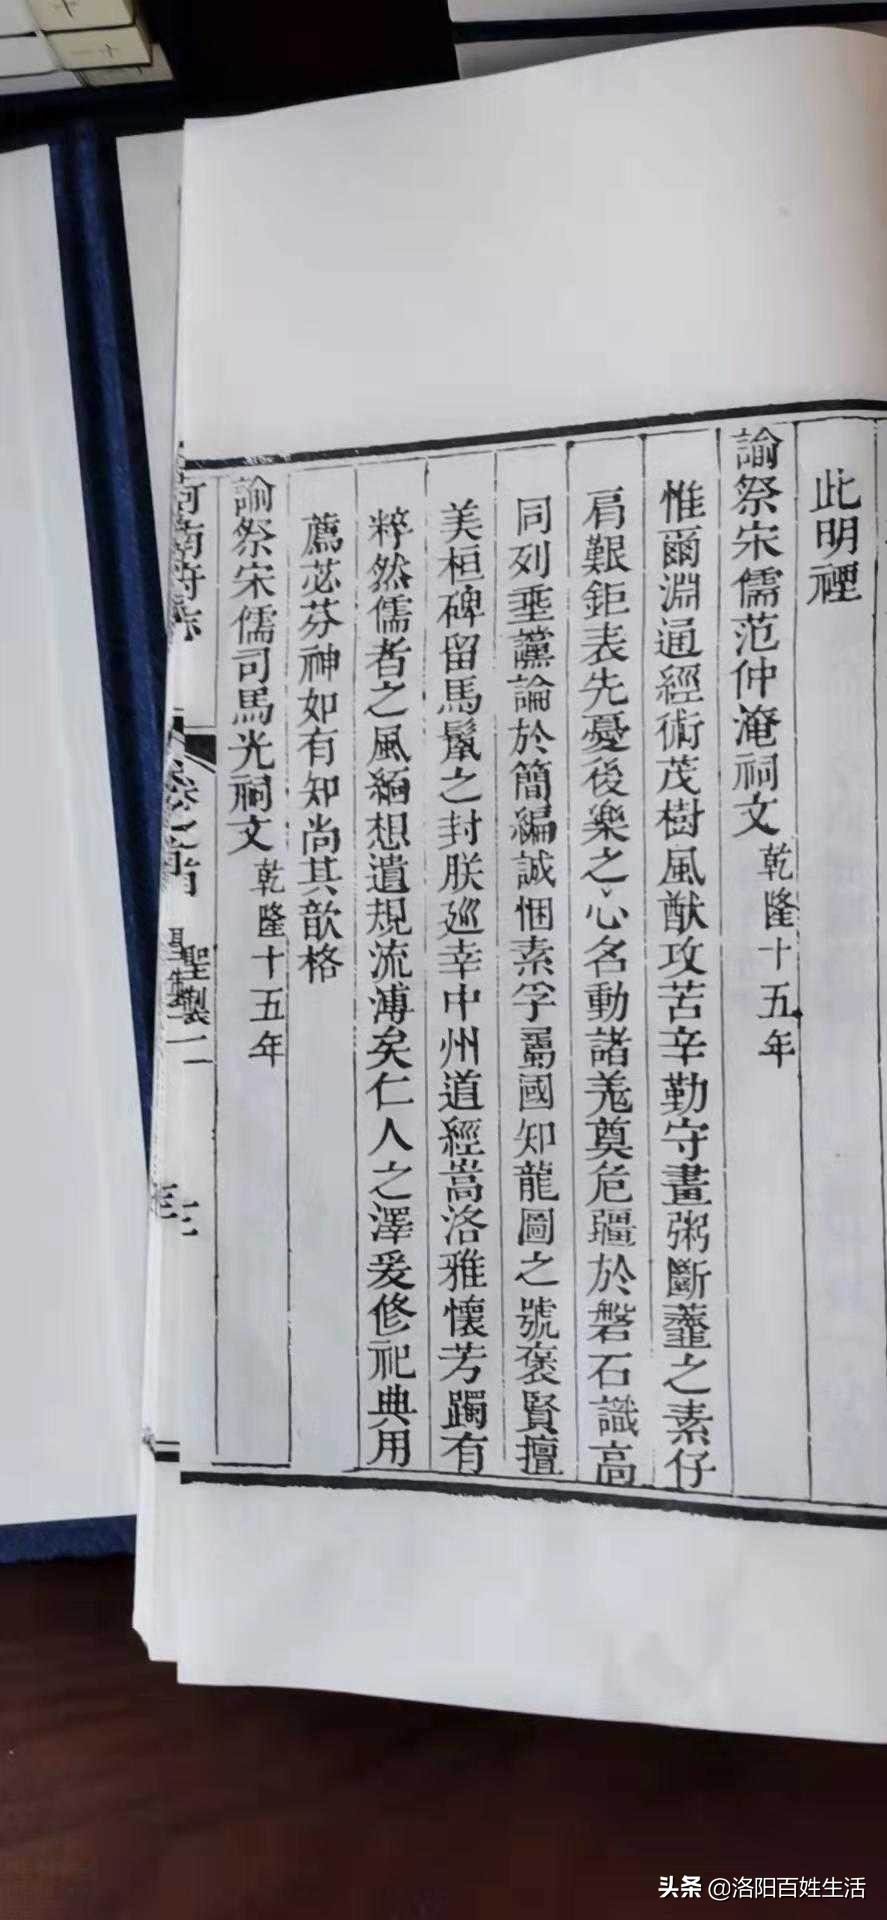 此明禋
諭祭宋儒范仲淹祠文 乾隆十五年
惟爾淵通經術茂樹風猷攻苦辛勤守畫粥斷虀之素仔
肩艱鉅表先憂後樂之心名動諸羗奠危疆於磐石識高
同列垂讜論於簡編誠悃素孚屬國知龍圖之號褒賢擅
美桓碑留馬鬣之封朕廵幸中州道經嵩洛雅懷芳躅有
粹然儒者之風緬想遺規流溥矣仁人之澤爰修祀典用
薦苾芬神如有知尚其歆格
諭祭宋儒司馬光祠文 乾隆十五年
河南府志 卷之首 聖製二
头条 @洛阳百姓生活